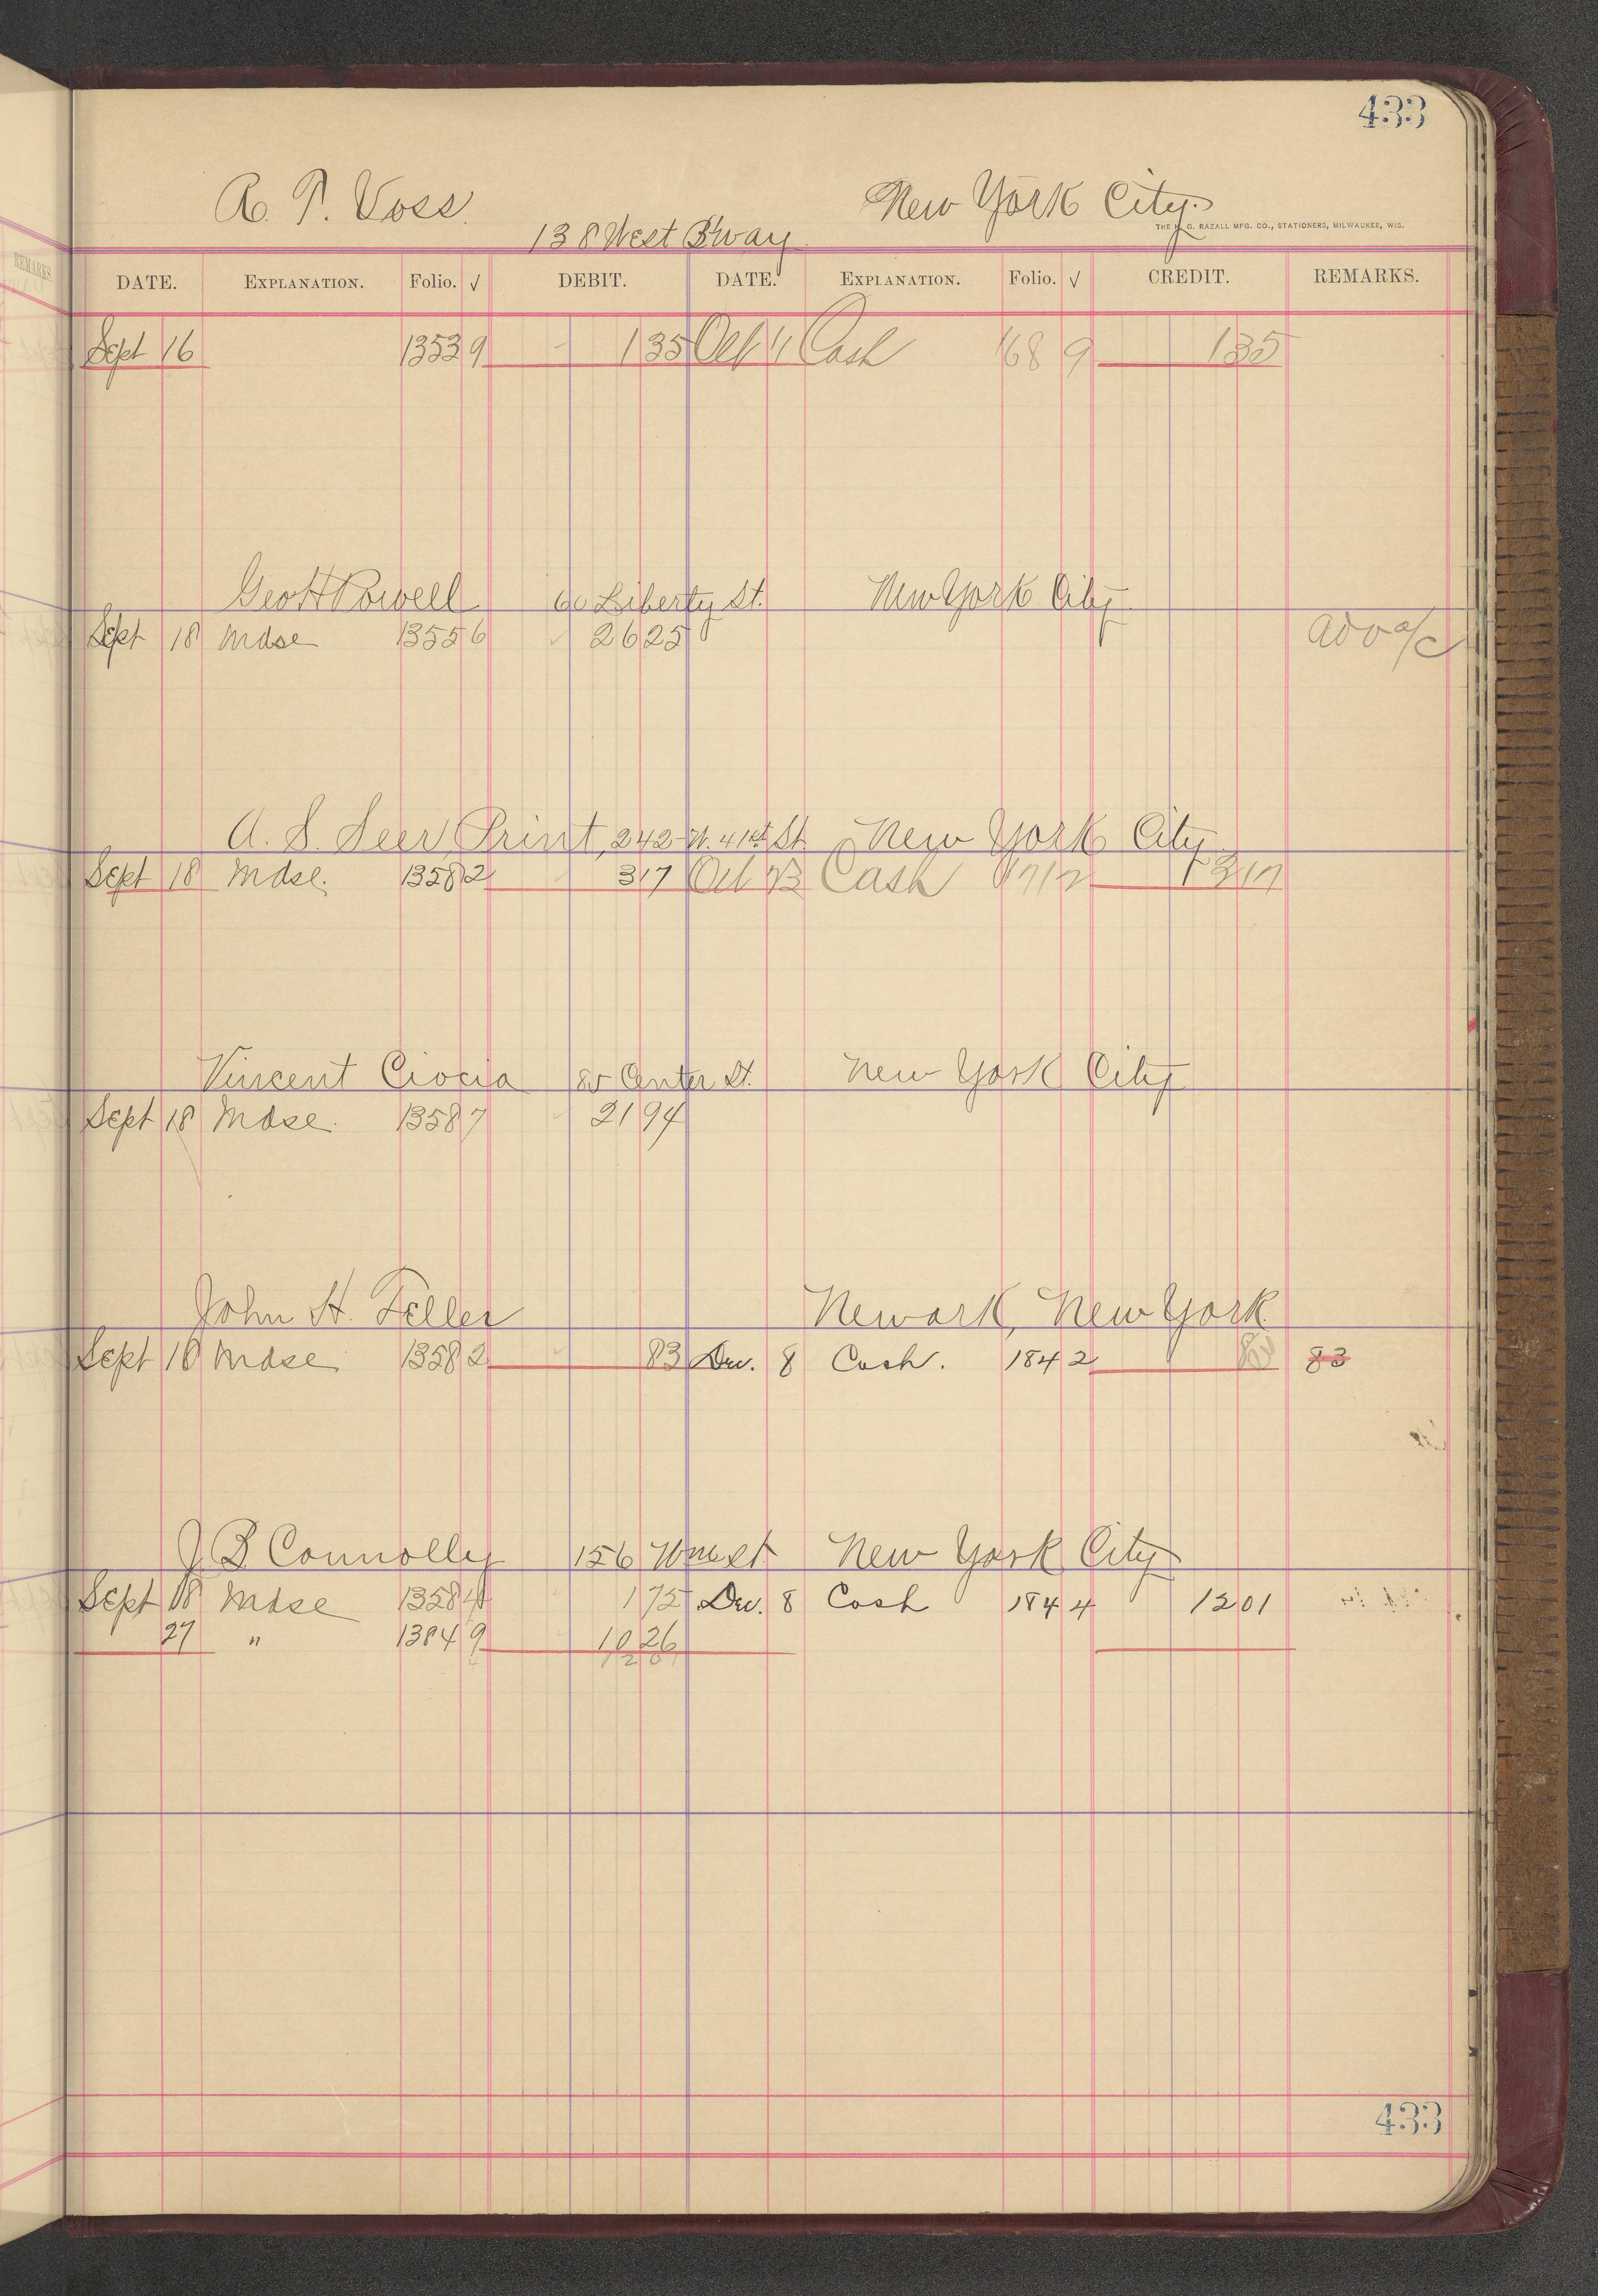 433
A. T. Voss. New York City.
138 West B'way
THE H. G. RAZALL MFG. CO., STATIONERS, MILWAUKEE, WIS.
REMARKS.
DATE. EXPLANATION. Folio. √ DEBIT. DATE. EXPLANATION. Folio. √ CREDIT. REMARKS.
Sept 16 13539 135 Oct 11 Cash 1689 135
Geo H Powell 60 Liberty St. New York City
Sept 18 Mdse 13556 2625 adv a/c
A. S. Seer Print, 242 W. 41st St. New York City
Sept 18 Mdse. 13582 317 Oct 13 Cash 1712 317
Vincent Ciocia 85 Center St. New York City
Sept 18 Mdse. 13587 2194
John H. Feller Newark, New York
Sept 18 Mdse 13582 83 Dec. 8 Cash. 1842 83 83
J. B Connolly 156 New York City
Sept 18 Mdse 13584 175 Dec. 8 Cash 1844 1201
27 " 13849 1026
1201
433